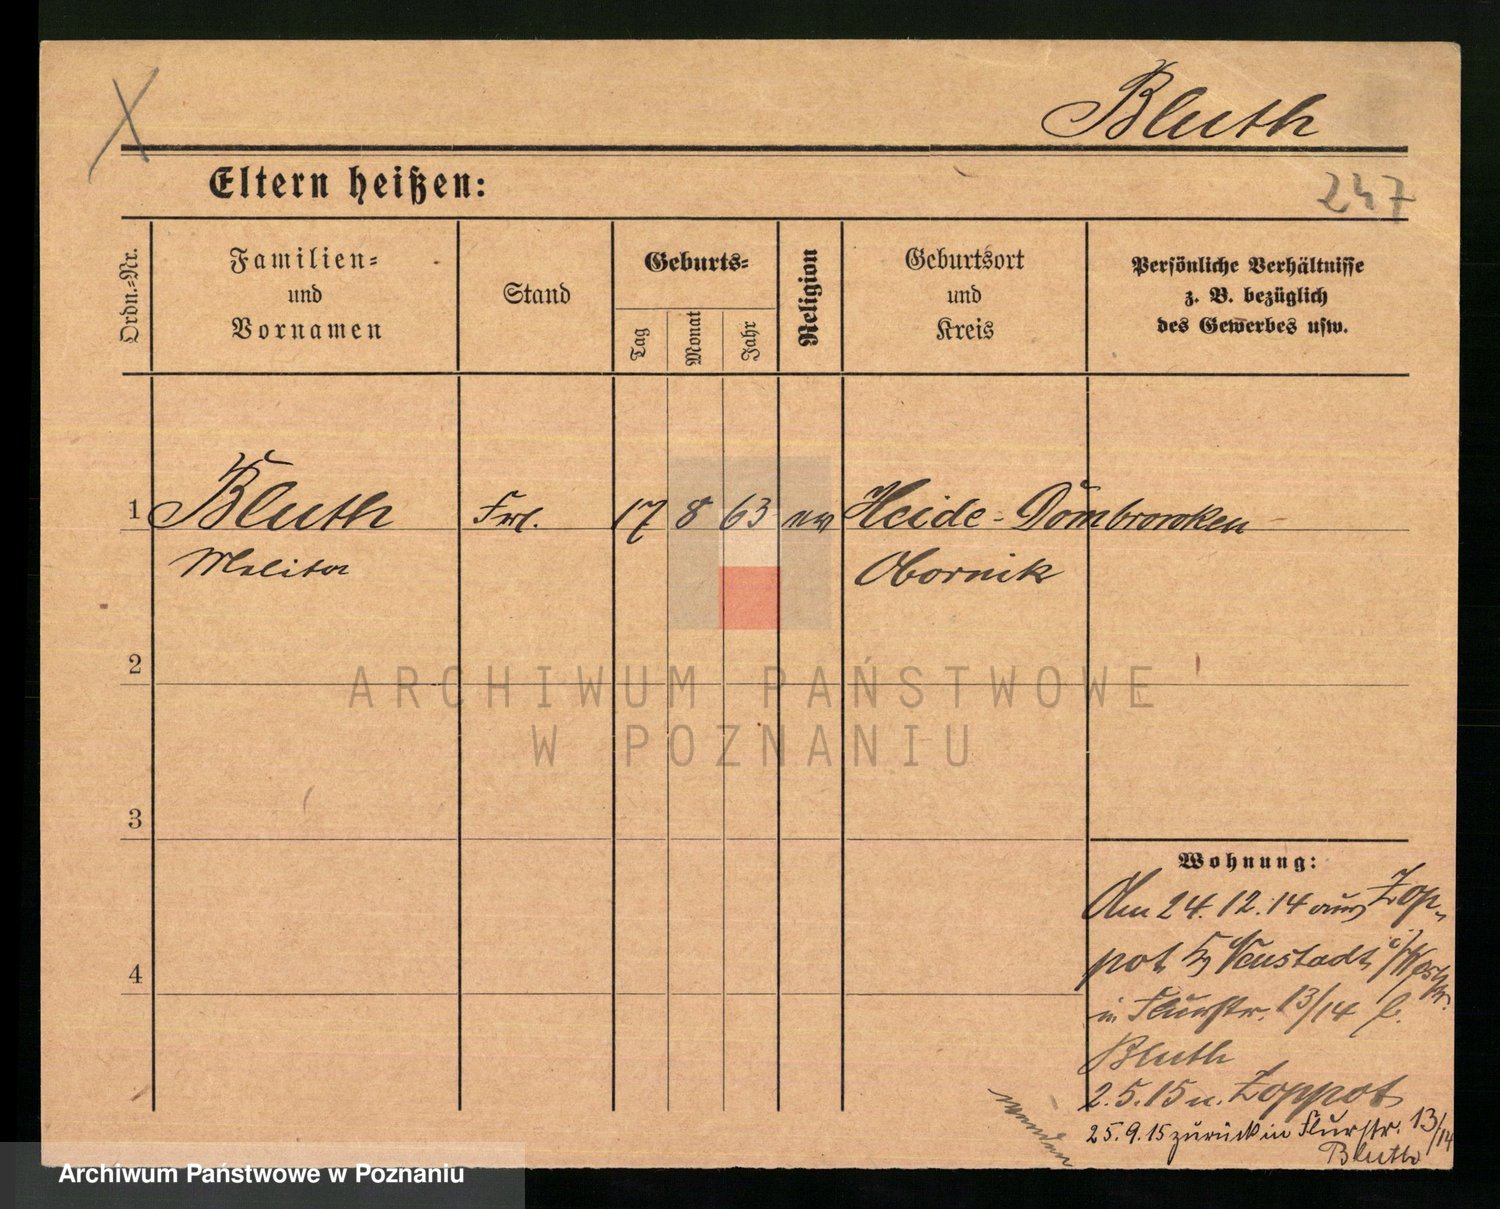 Bluth
Eltern heißen:
247
Ordn.-Nr.
Familien-
und
Vornamen
Stand
Geburts-
Tag
Monat
Jahr
Religion
Geburtsort
und
Kreis
Persönliche Verhältnisse
z. B. bezüglich
des Gewerbes usw.
1 Bluth Frl. 17 8 63 ev Heide-Dombrowken
Obornik
2
ARCHIWUM PAŃSTWOWE
W POZNANIU
3
Wohnung:
Am 24.12.14 aus Zop-
pot Neustadt
4
in Flurstr. 13/14 b.
Bluth
2.5.15 n. Zoppot
25.9.15 zurück in Flurstr. 13/14
Bluth
wenden
Archiwum Państwowe w Poznaniu